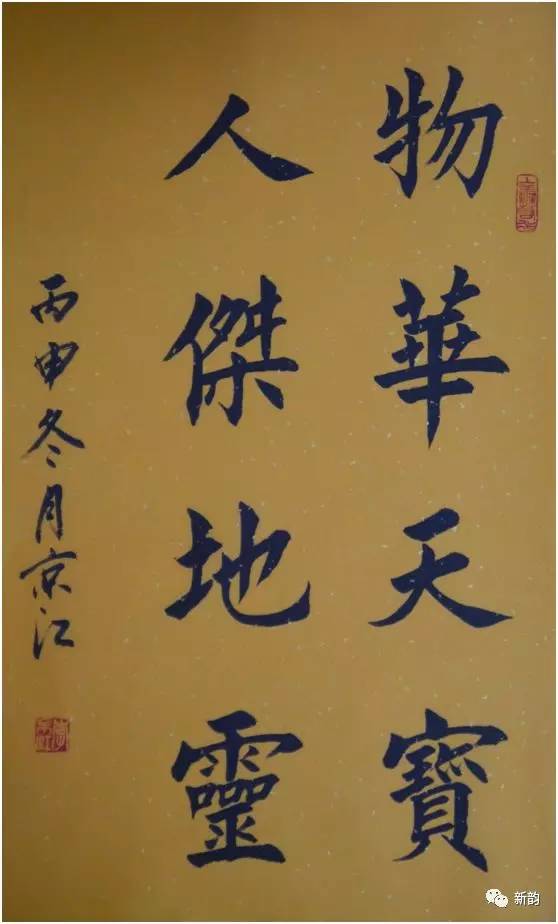 物華天寶
人傑地靈
丙申冬月京江
新韵